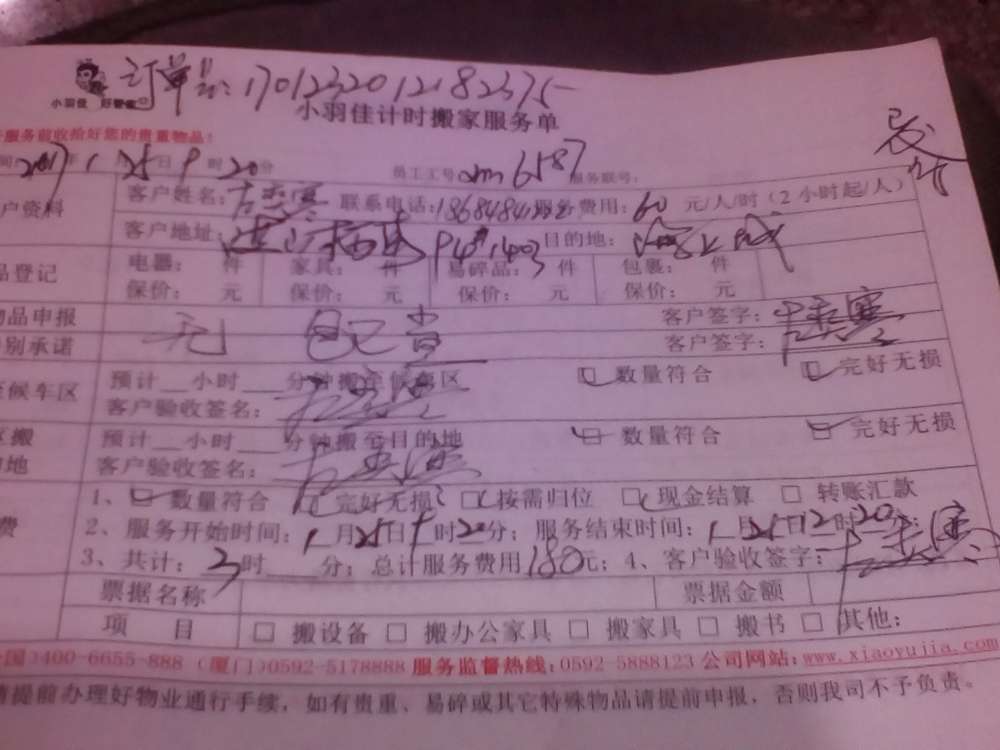 订单号:1701232012182375
小羽佳 好管家
小羽佳计时搬家服务单
服务前收拾好您的贵重物品!
2017年1月25日9时20分 员工工号 xm6587 服务联号:
户资料 客户姓名: 联系电话: 服务费用:60元/人/时(2小时起/人)
客户地址: 目的地:
品登记 电器: 件 家具: 件 易碎品: 件 包裹: 件
保价: 元 保价: 元 保价: 元 保价: 元
物品申报 无 客户签字:
别承诺 自己 客户签字:
候车区 预计__小时___分钟搬至候车区 数量符合 完好无损
客户验收签名:
搬 预计__小时___分钟搬至目的地 数量符合 完好无损
的地 客户验收签名:
费 1、数量符合 完好无损 按需归位 现金结算 转账汇款
2、服务开始时间:1月25日9时20分;服务结束时间:1月25日12时20
3、共计:3时____分;总计服务费用180元;4、客户验收签字:
票据名称 票据金额
项 目 搬设备 搬办公家具 搬家具 搬书 其他:
国)400-6655-888 (厦门)0592-5178888 服务监督热线:0592-5888123 公司网站:www.xiaoyujia.com
提前办理好物业通行手续,如有贵重、易碎或其它特殊物品请提前申报,否则我司不予负责。